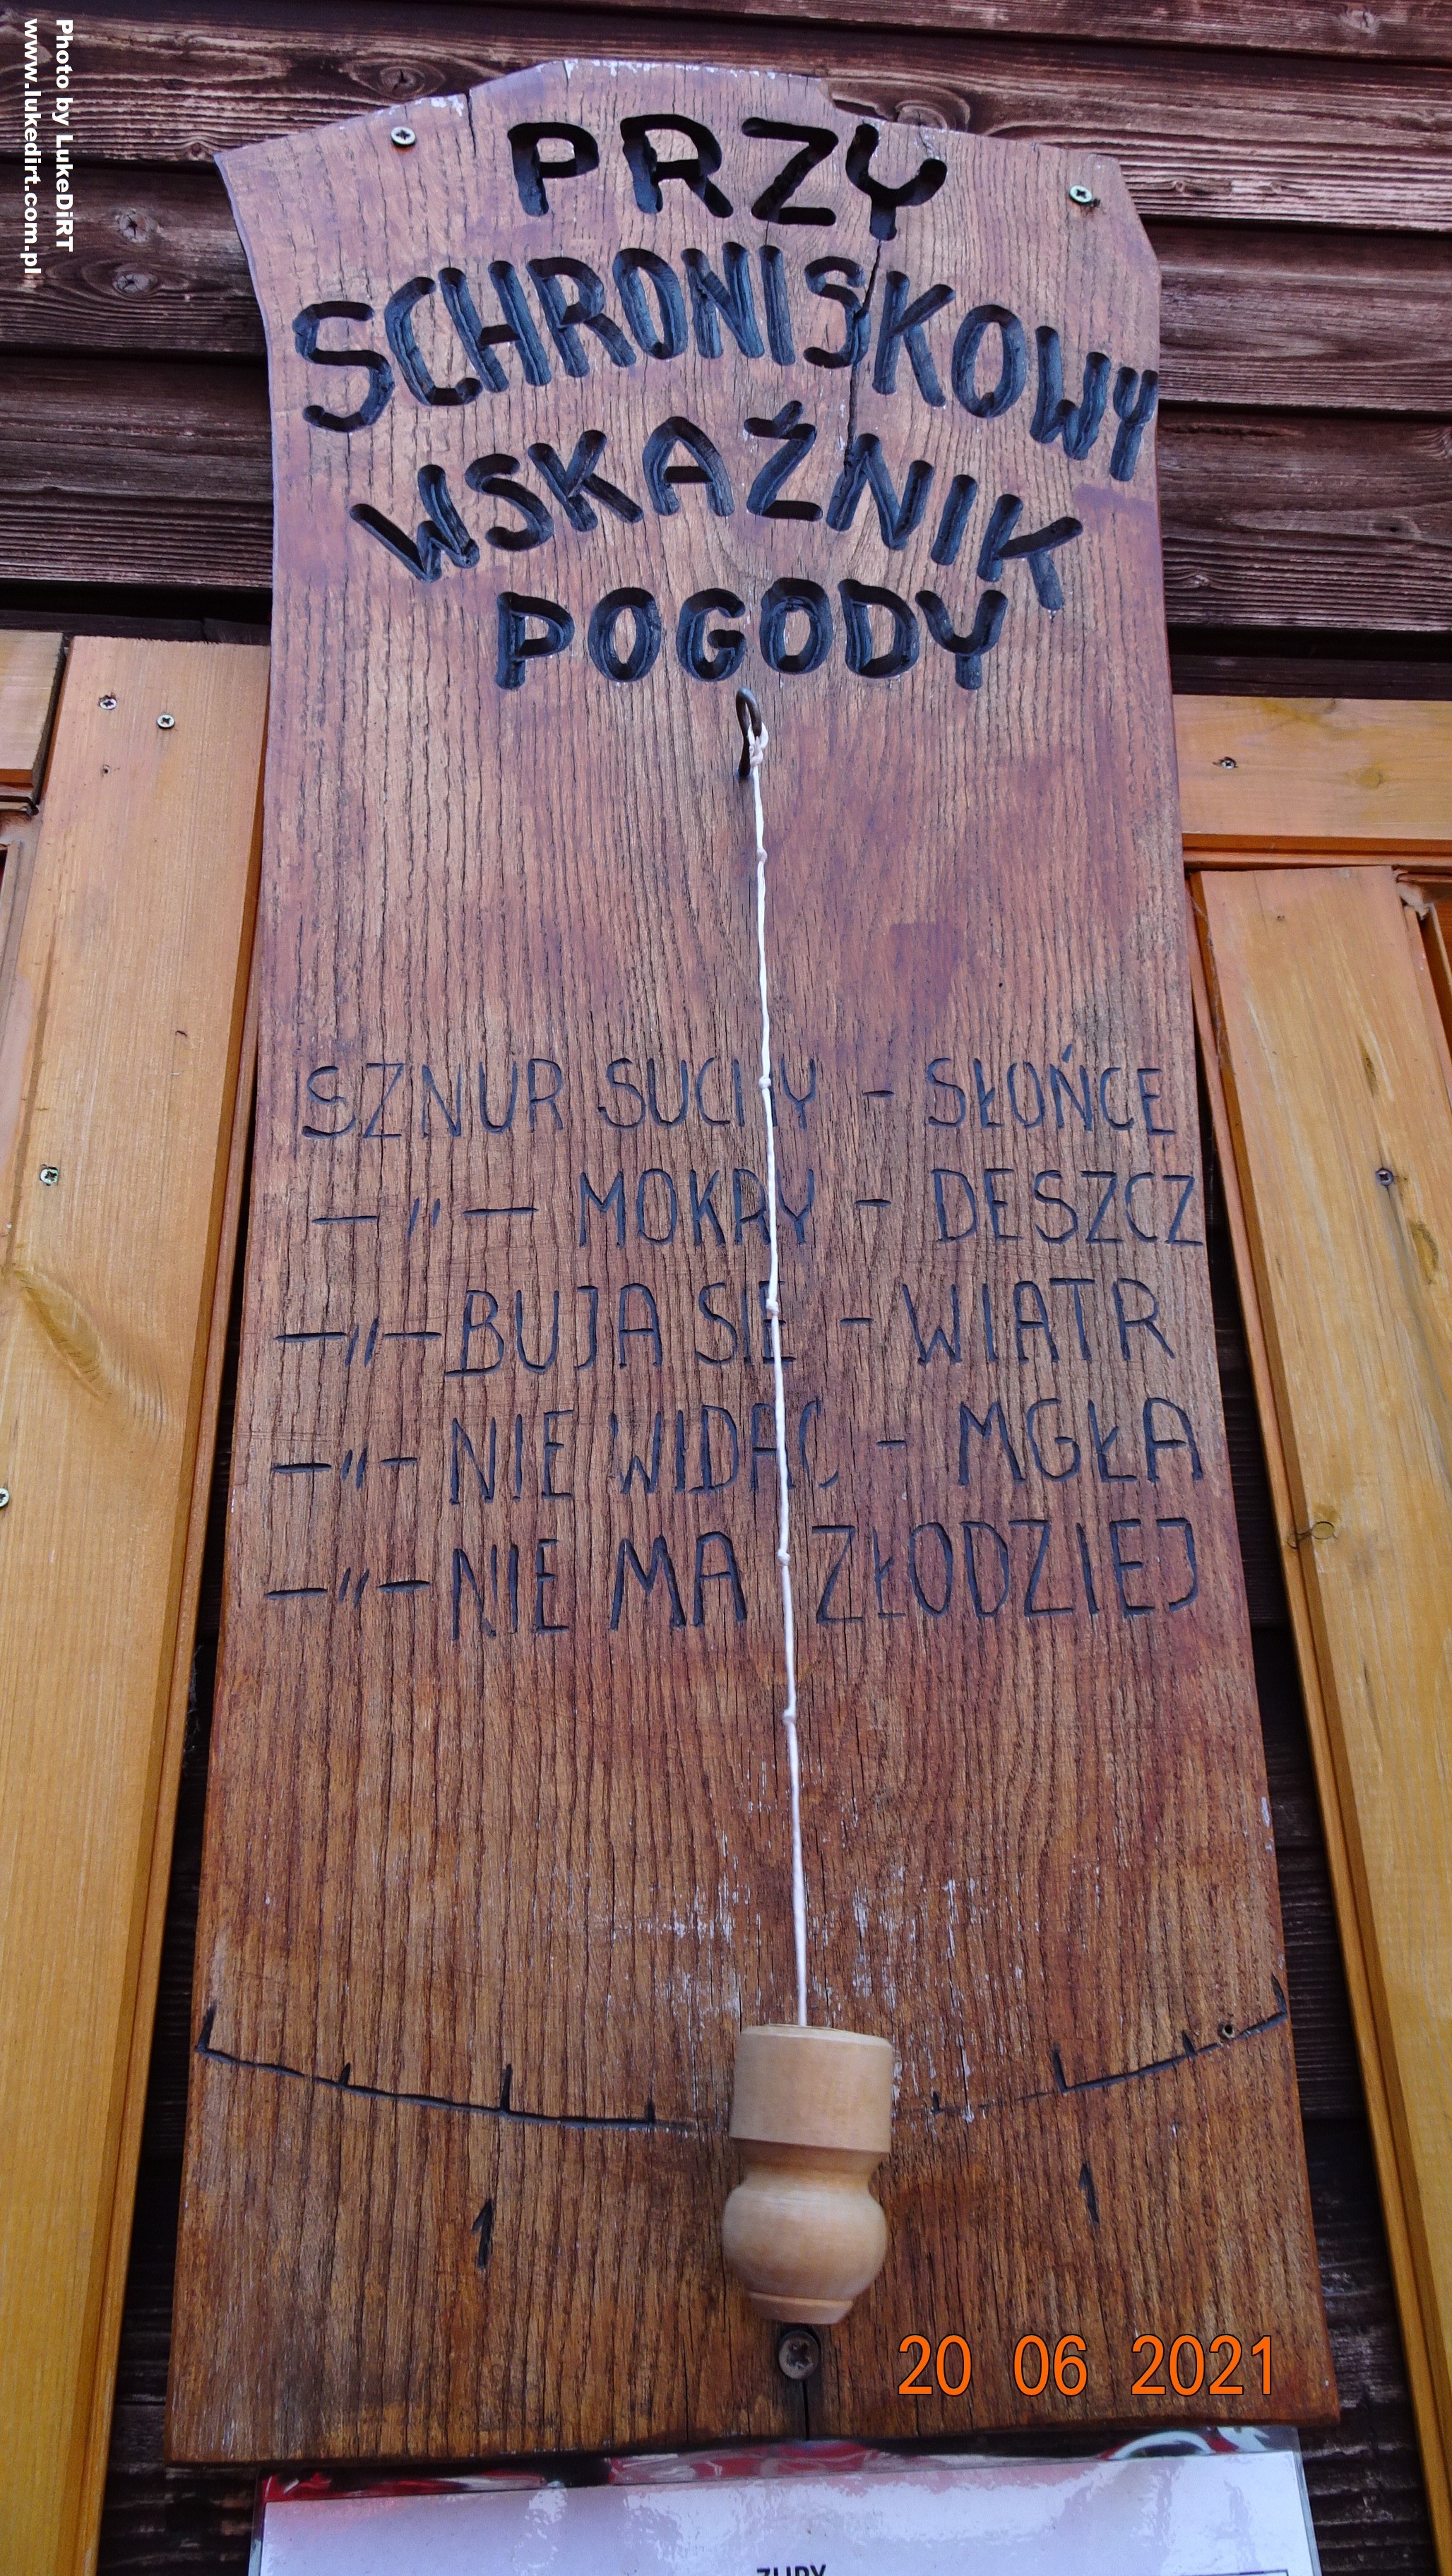 Photo by LukeDiRT
www.lukedirt.com.pl
PRZY
SCHRONISKOWY
WSKAŹNIK
POGODY
SZNUR SUCHY - SŁOŃCE
—〃— MOKRY - DESZCZ
—〃— BUJA SIĘ - WIATR
—〃— NIE WIDAĆ - MGŁA
—〃— NIE MA ZŁODZIEJ
1 1
20 06 2021
ZUPY